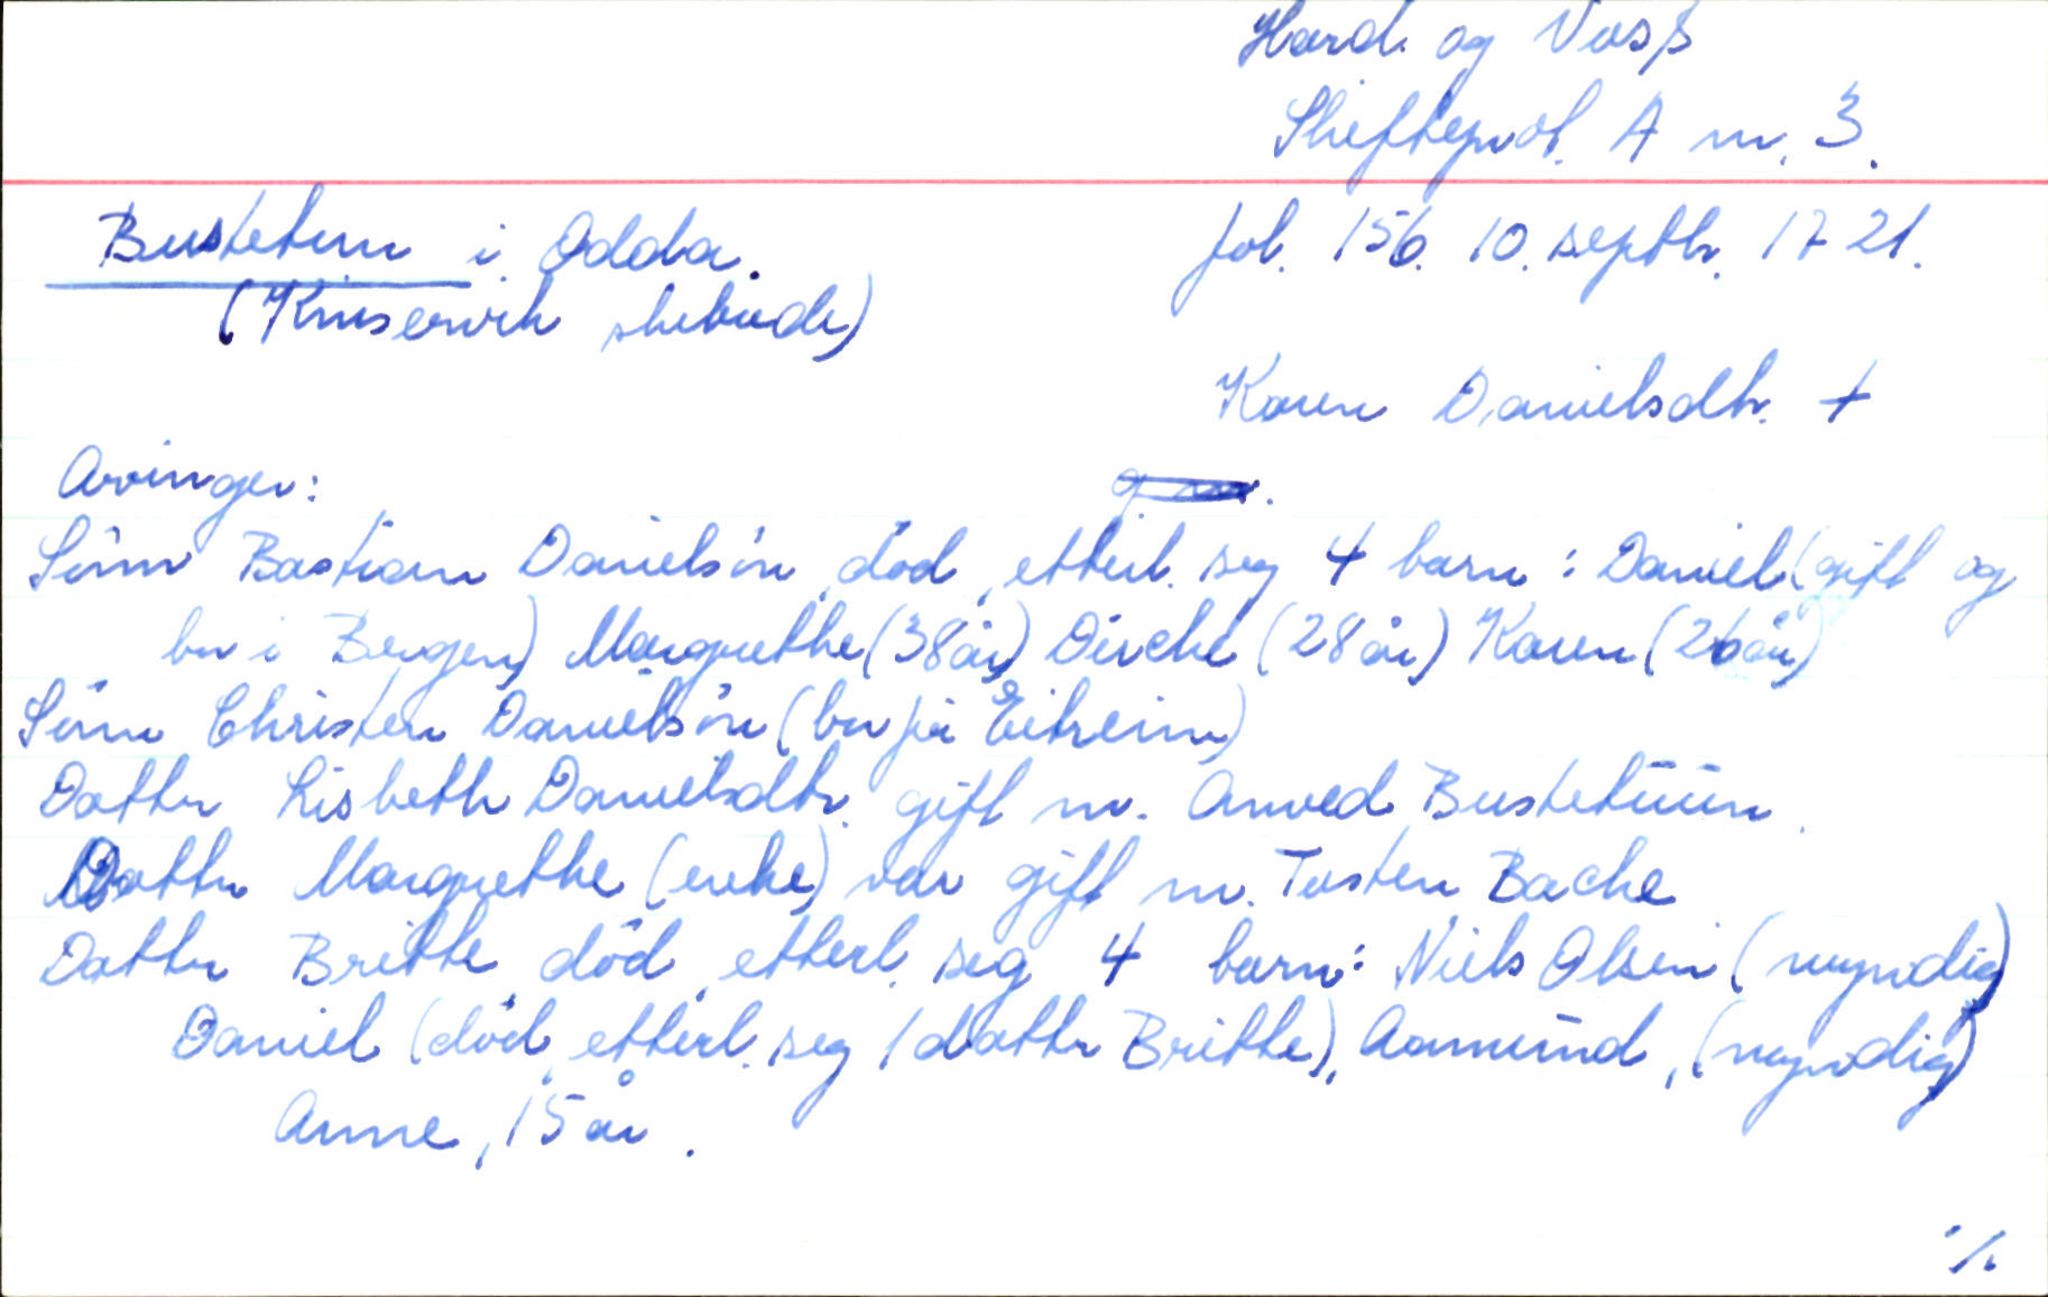 Hard. og Voss
Skifteprot. A nr. 3.
Bustetun i Odda.
fol. 156. 10. septbr. 1721.
(Kinservik skibrede)
Karen Danielsdtr. +
Arvinger:
Sönn Bastian Danielsön, död, etterl. seg 4 barn : Daniel (gift og
bor i Bergen) Margrethe (38 år) Dirche (28 år) Karen (26 år)
Sönn Christen Danielsön (bor på Eitreim)
Datter Lisbeth Danielsdtr. gift m. Amved Bustetuun.
Datter Margrethe (enke) var gift m. Tosten Bache
Datter Britte, död, etterl. seg 4 barn: Niels Olsen (myndig)
Daniel (död, etterl. seg 1 datter Britte), Aamund, (myndig)
Anne, 15 år.
./.